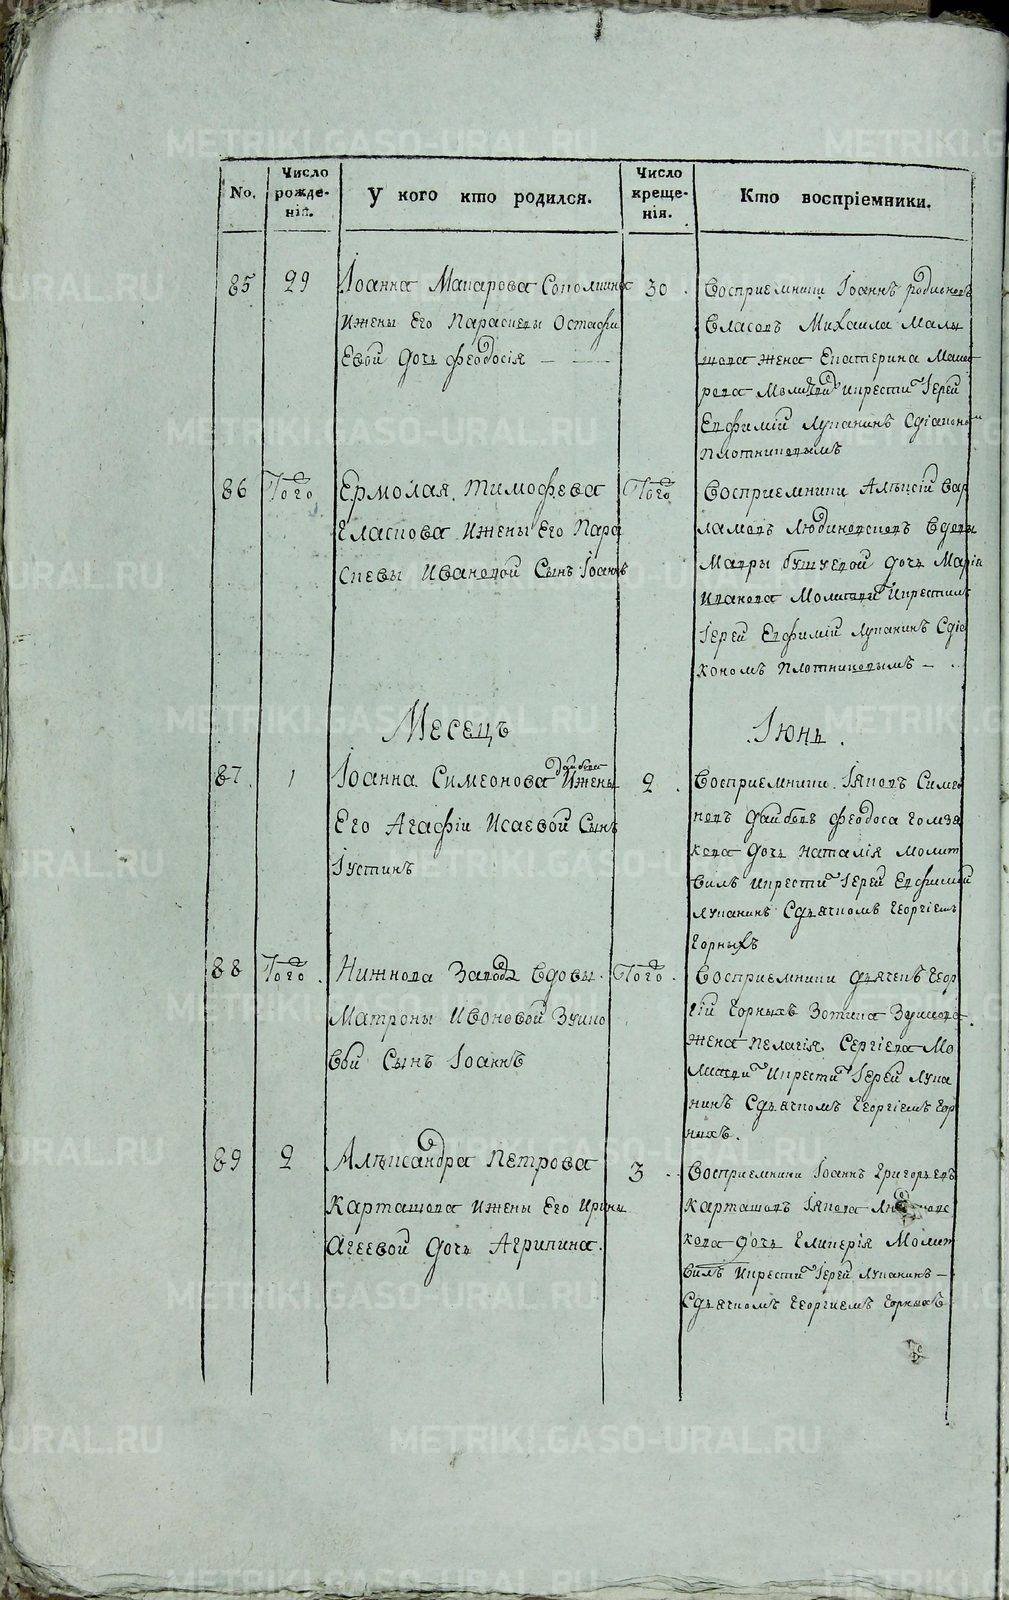 No.
Число рожде-нія.
У кого кто родился.
Число креще-нія.
Кто воспріемники.
85
29
Іоанна Макарова
ижены Его Параскевы Остафи
Евой дочь феодосія — —
30
Восприемники Іоаннъ родионовъ
Власовъ Михаила Малы
шова жена Екатерина Мака
рова Молитв и крести Іерей
Евфимій Лупанинъ Сдіакон
Плотниковымъ
86
Того
Ермолая Тимофеева
ижены Его Пара
скевы Ивановой Сынъ Іоаннъ
Того
Восприемники Алѣксій Вар
ламовъ Людиновсковъ вдовы
Мавры бушуевой дочь Марія
Иванова Молитвил Икрестилъ
Іерей Евфимій Лупанинъ Сдіа
кономъ Плотниковымъ —
Месецъ
Іюнь
87
1
Іоанна Симеонова Ижены
Его Агафіи Исаевой Сынъ
Іустинъ
2
Восприемники Іяковъ Симео
новъ феодоса
кова дочь Наталія Молит
вилъ Икрести Іерей Евфимій
Лупанинъ Сдьячкомъ Георгіемъ
Горныхъ
88
Того
Нижнова Завода вдовы
Матроны Ивоновой Зуико
вой Сынъ Іоаннъ
Того
Восприемники дьячекъ Геор
гій Горныхъ Зотика
жена Пелагія Сергіева Мо
литви Икрести Іерей Лупа
нинъ Сдьячкомъ Георгіемъ Гор
ныхъ.
89
2
Алѣксандра Петрова
Карташова ижены Его Ирины
Агеевой дочь Агрипина.
3
Восприемники Іоаннъ Григорьевъ
Карташовъ Іякова
кова дочь Гликерія Молит
вилъ Икрести Іерей Лупанинъ —
Сдьячкомъ Георгіемъ Горныхъ
METRIKI.GASO-URAL.RU